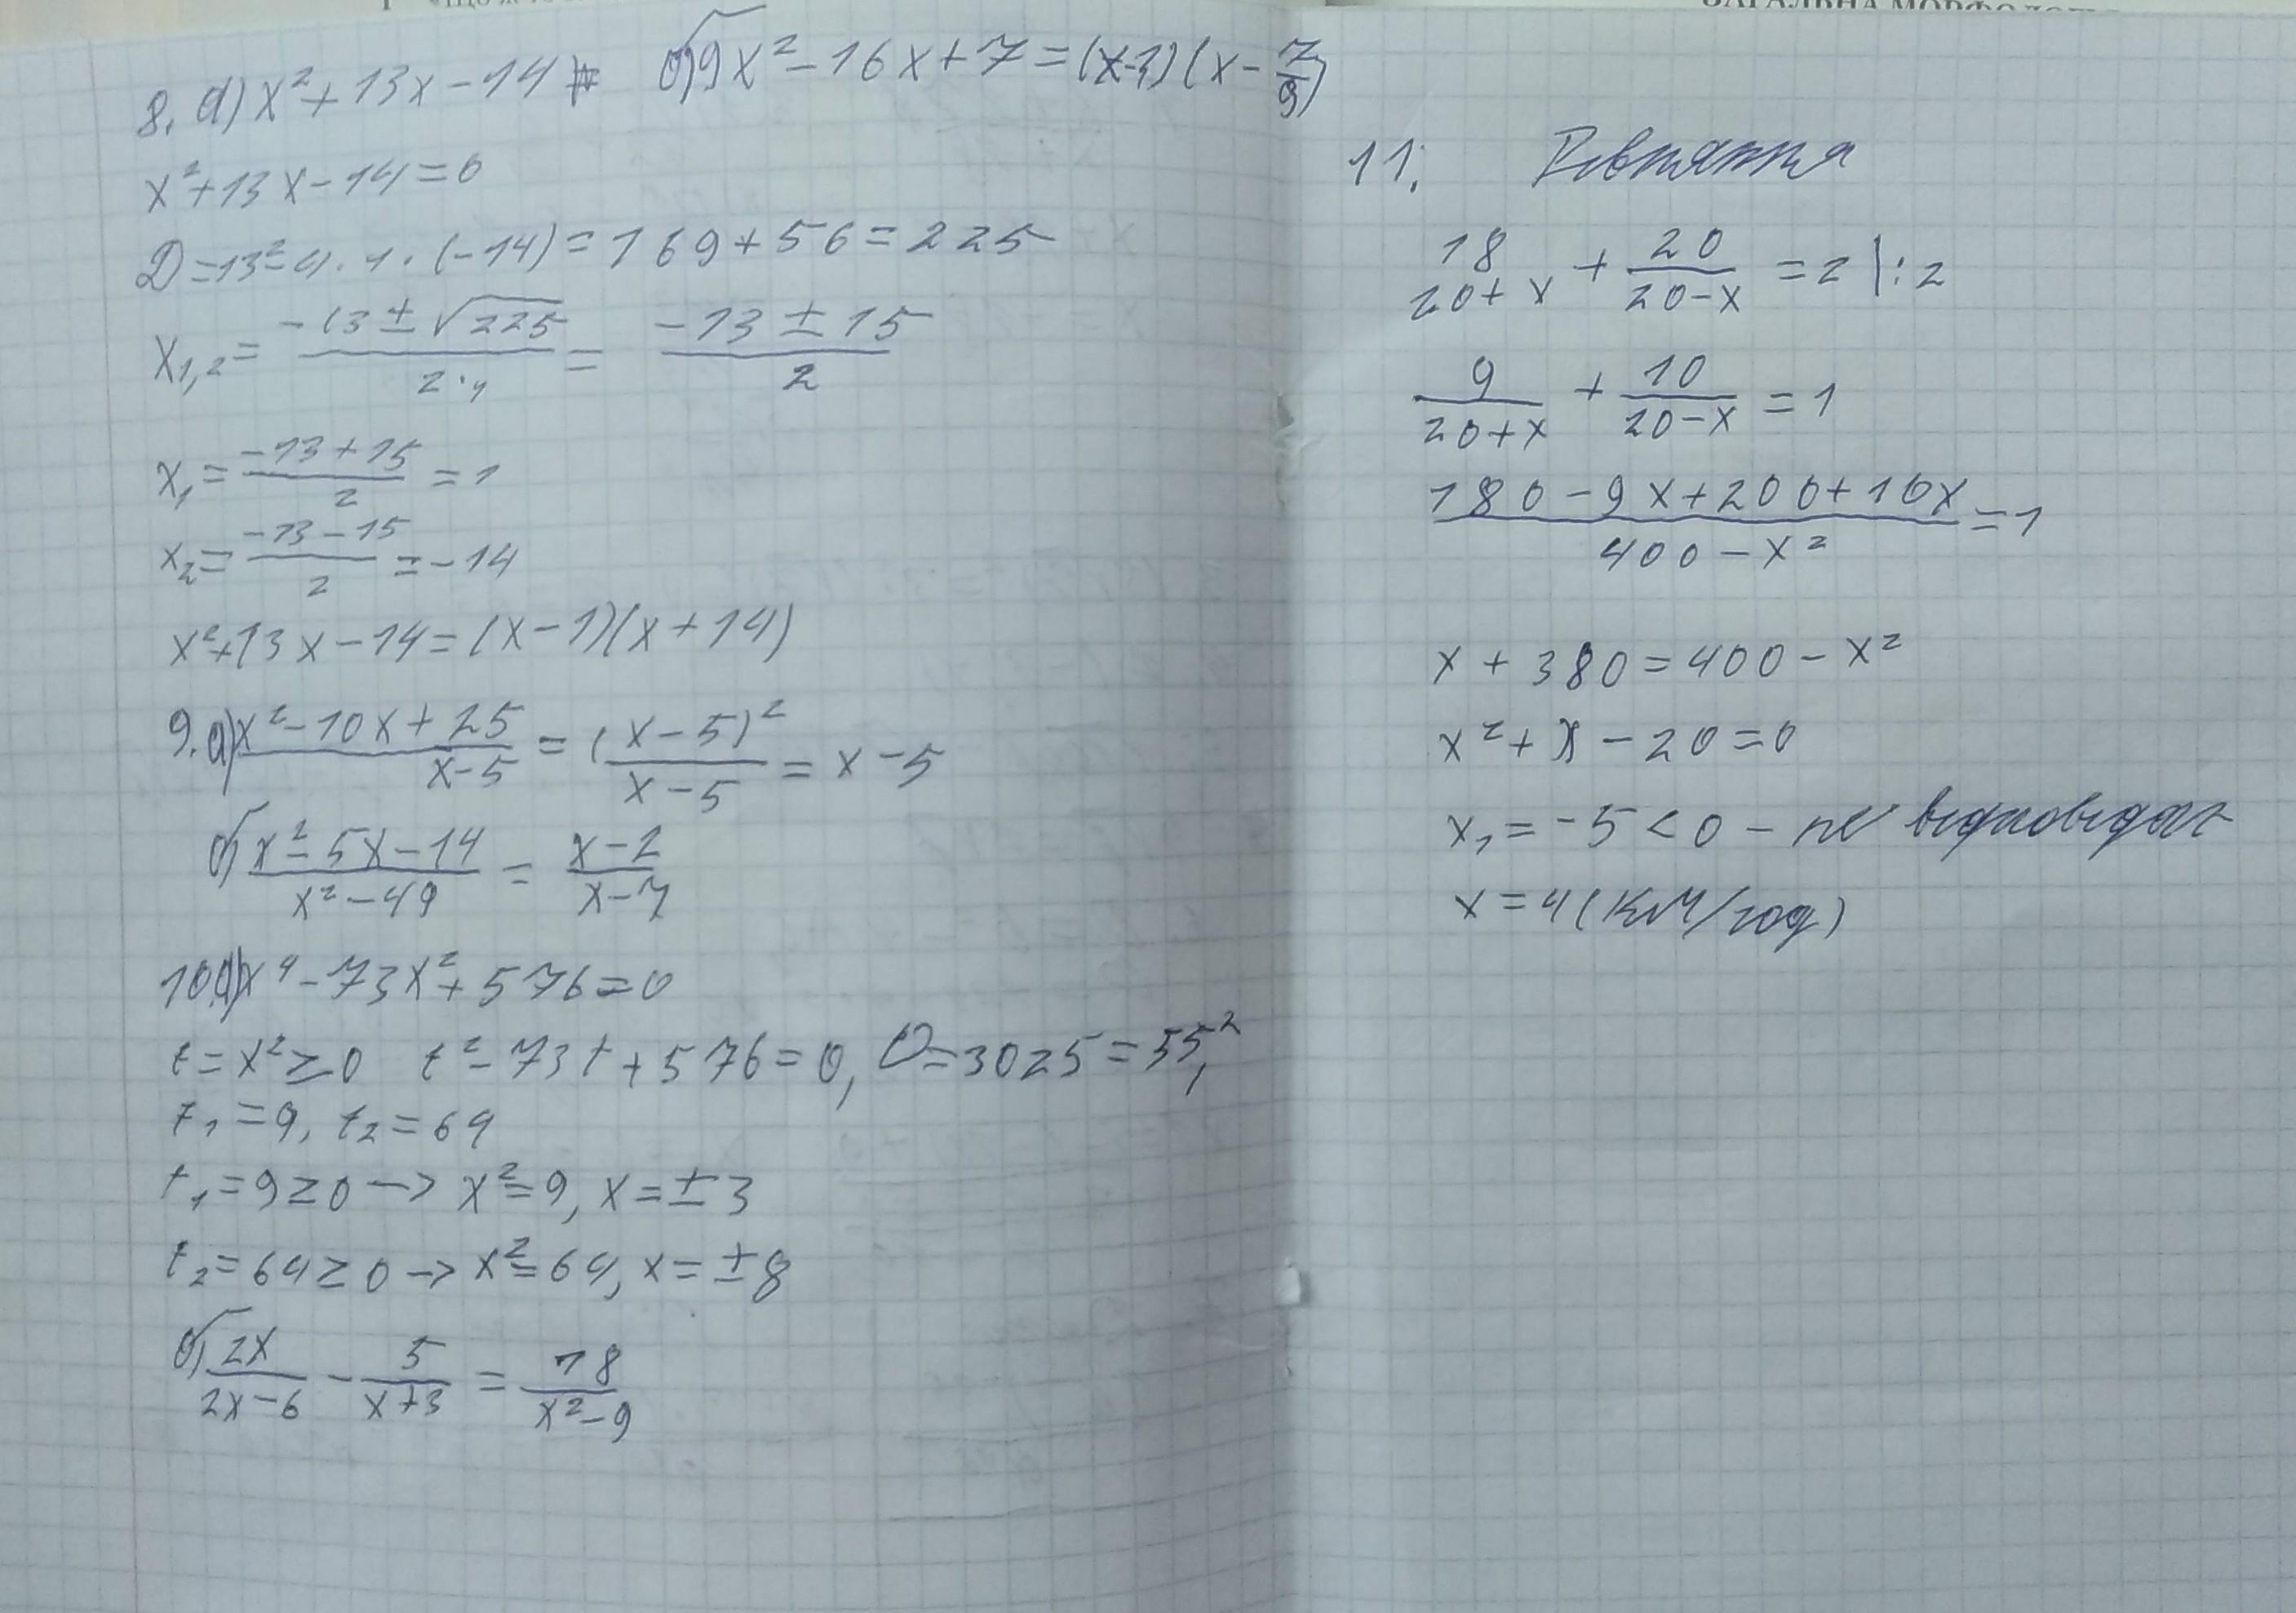 8. а) x² + 13x - 14
б) 9x² - 16x + 7 = (x-1)(x - 7/9)
x² + 13x - 14 = 0
D = 13² - 4 · 1 · (-14) = 169 + 56 = 225
x₁,₂ = (-13 ± √225)/(2·1) = (-13 ± 15)/2
x₁ = (-13 + 15)/2 = 1
x₂ = (-13 - 15)/2 = -14
x² + 13x - 14 = (x - 1)(x + 14)
9. а) (x² - 10x + 25)/(x - 5) = (x - 5)²/(x - 5) = x - 5
б) (x² - 5x - 14)/(x² - 49) = (x - 2)/(x - 7)
10. а) x⁴ - 73x² + 576 = 0
t = x² ≥ 0 t² - 73t + 576 = 0, D = 3025 = 55²,
t₁ = 9, t₂ = 64
t₁ = 9 ≥ 0 → x² = 9, x = ±3
t₂ = 64 ≥ 0 → x² = 64, x = ±8
б) 2x/(2x - 6) - 5/(x + 3) = 18/(x² - 9)
11. Рівняння
18/(20 + x) + 20/(20 - x) = 2 |:2
9/(20 + x) + 10/(20 - x) = 1
(180 - 9x + 200 + 10x)/(400 - x²) = 1
x + 380 = 400 - x²
x² + x - 20 = 0
x₁ = -5 < 0 - не відповідає
x = 4 (км/год)